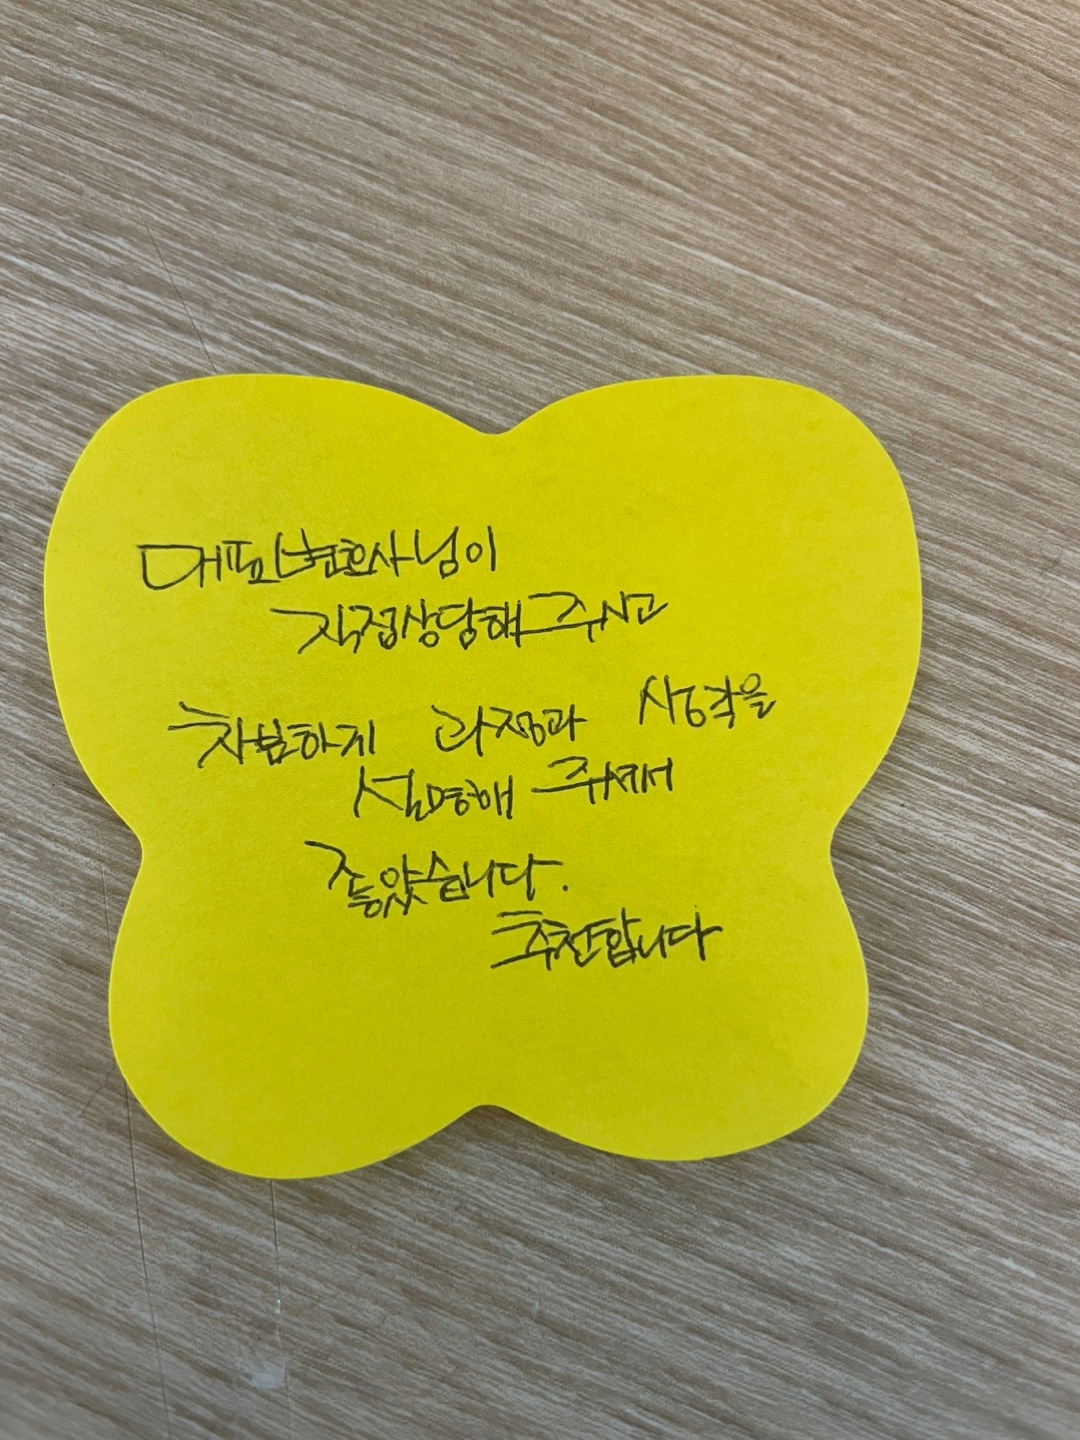 대표변호사님이
직접상담해 주시고
차분하게 과정과 생각을
설명해 주셔서
좋았습니다.
추천합니다